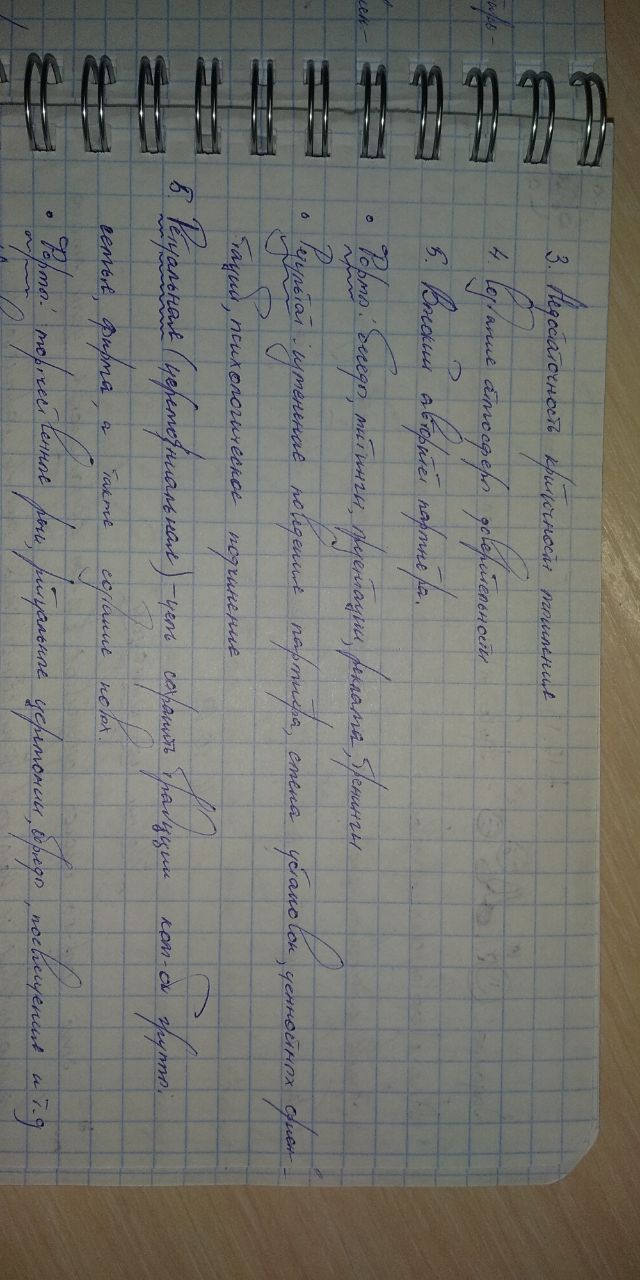 3. Недостаточность критичности мышления
4. Создание атмосферы доверительности
5. Высокий авторитет партнёра.
• Формы: беседы, митинги, презентации, реклама, тренинги
• Результат: изменение поведения партнёра, смена установок, ценностных ориен-
таций, психологическое подчинение
Ритуальная (церемониальная) - цель сохранить традиции кот-ой группы.
семье, фирма, а также создание новых.
• Формы: торжественные речи, ритуальные церемонии, обряды, посвящения и т.д